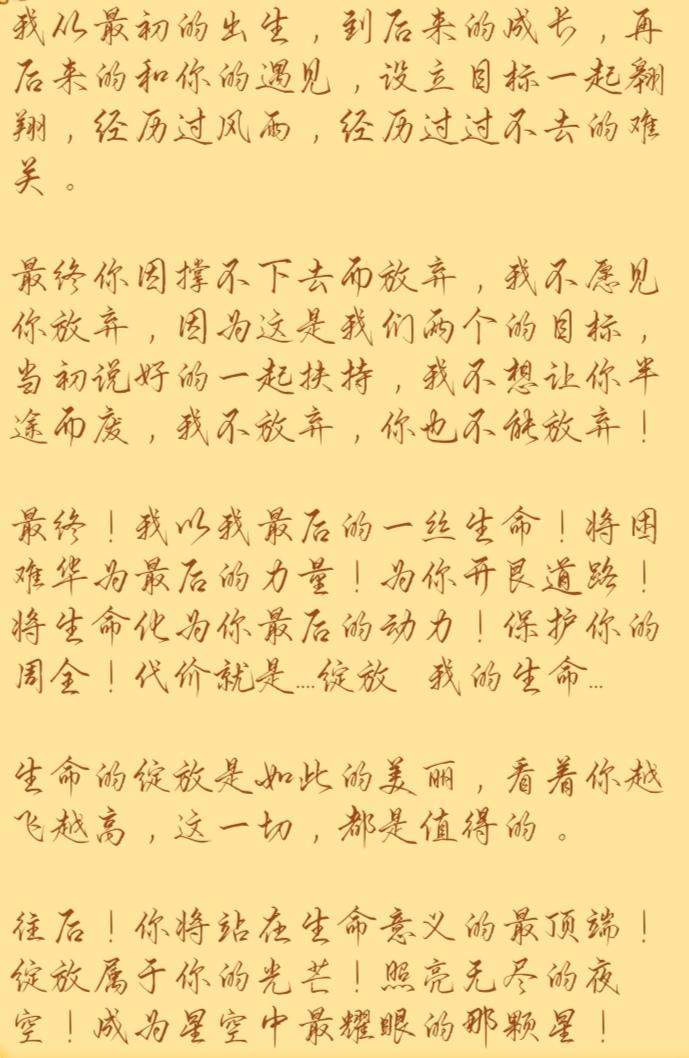 我从最初的出生，到后来的成长，再
后来的和你的遇见，设立目标一起翱
翔，经历过风雨，经历过过不去的难
关。
最终你因撑不下去而放弃，我不愿见
你放弃，因为这是我们两个的目标，
当初说好的一起扶持，我不想让你半
途而废，我不放弃，你也不能放弃！
最终！我以我最后的一丝生命！将困
难华为最后的力量！为你开艮道路！
将生命化为你最后的动力！保护你的
周全！代价就是....绽放 我的生命...
生命的绽放是如此的美丽，看着你越
飞越高，这一切，都是值得的。
往后！你将站在生命意义的最顶端！
绽放属于你的光芒！照亮无尽的夜
空！成为星空中最耀眼的那颗星！